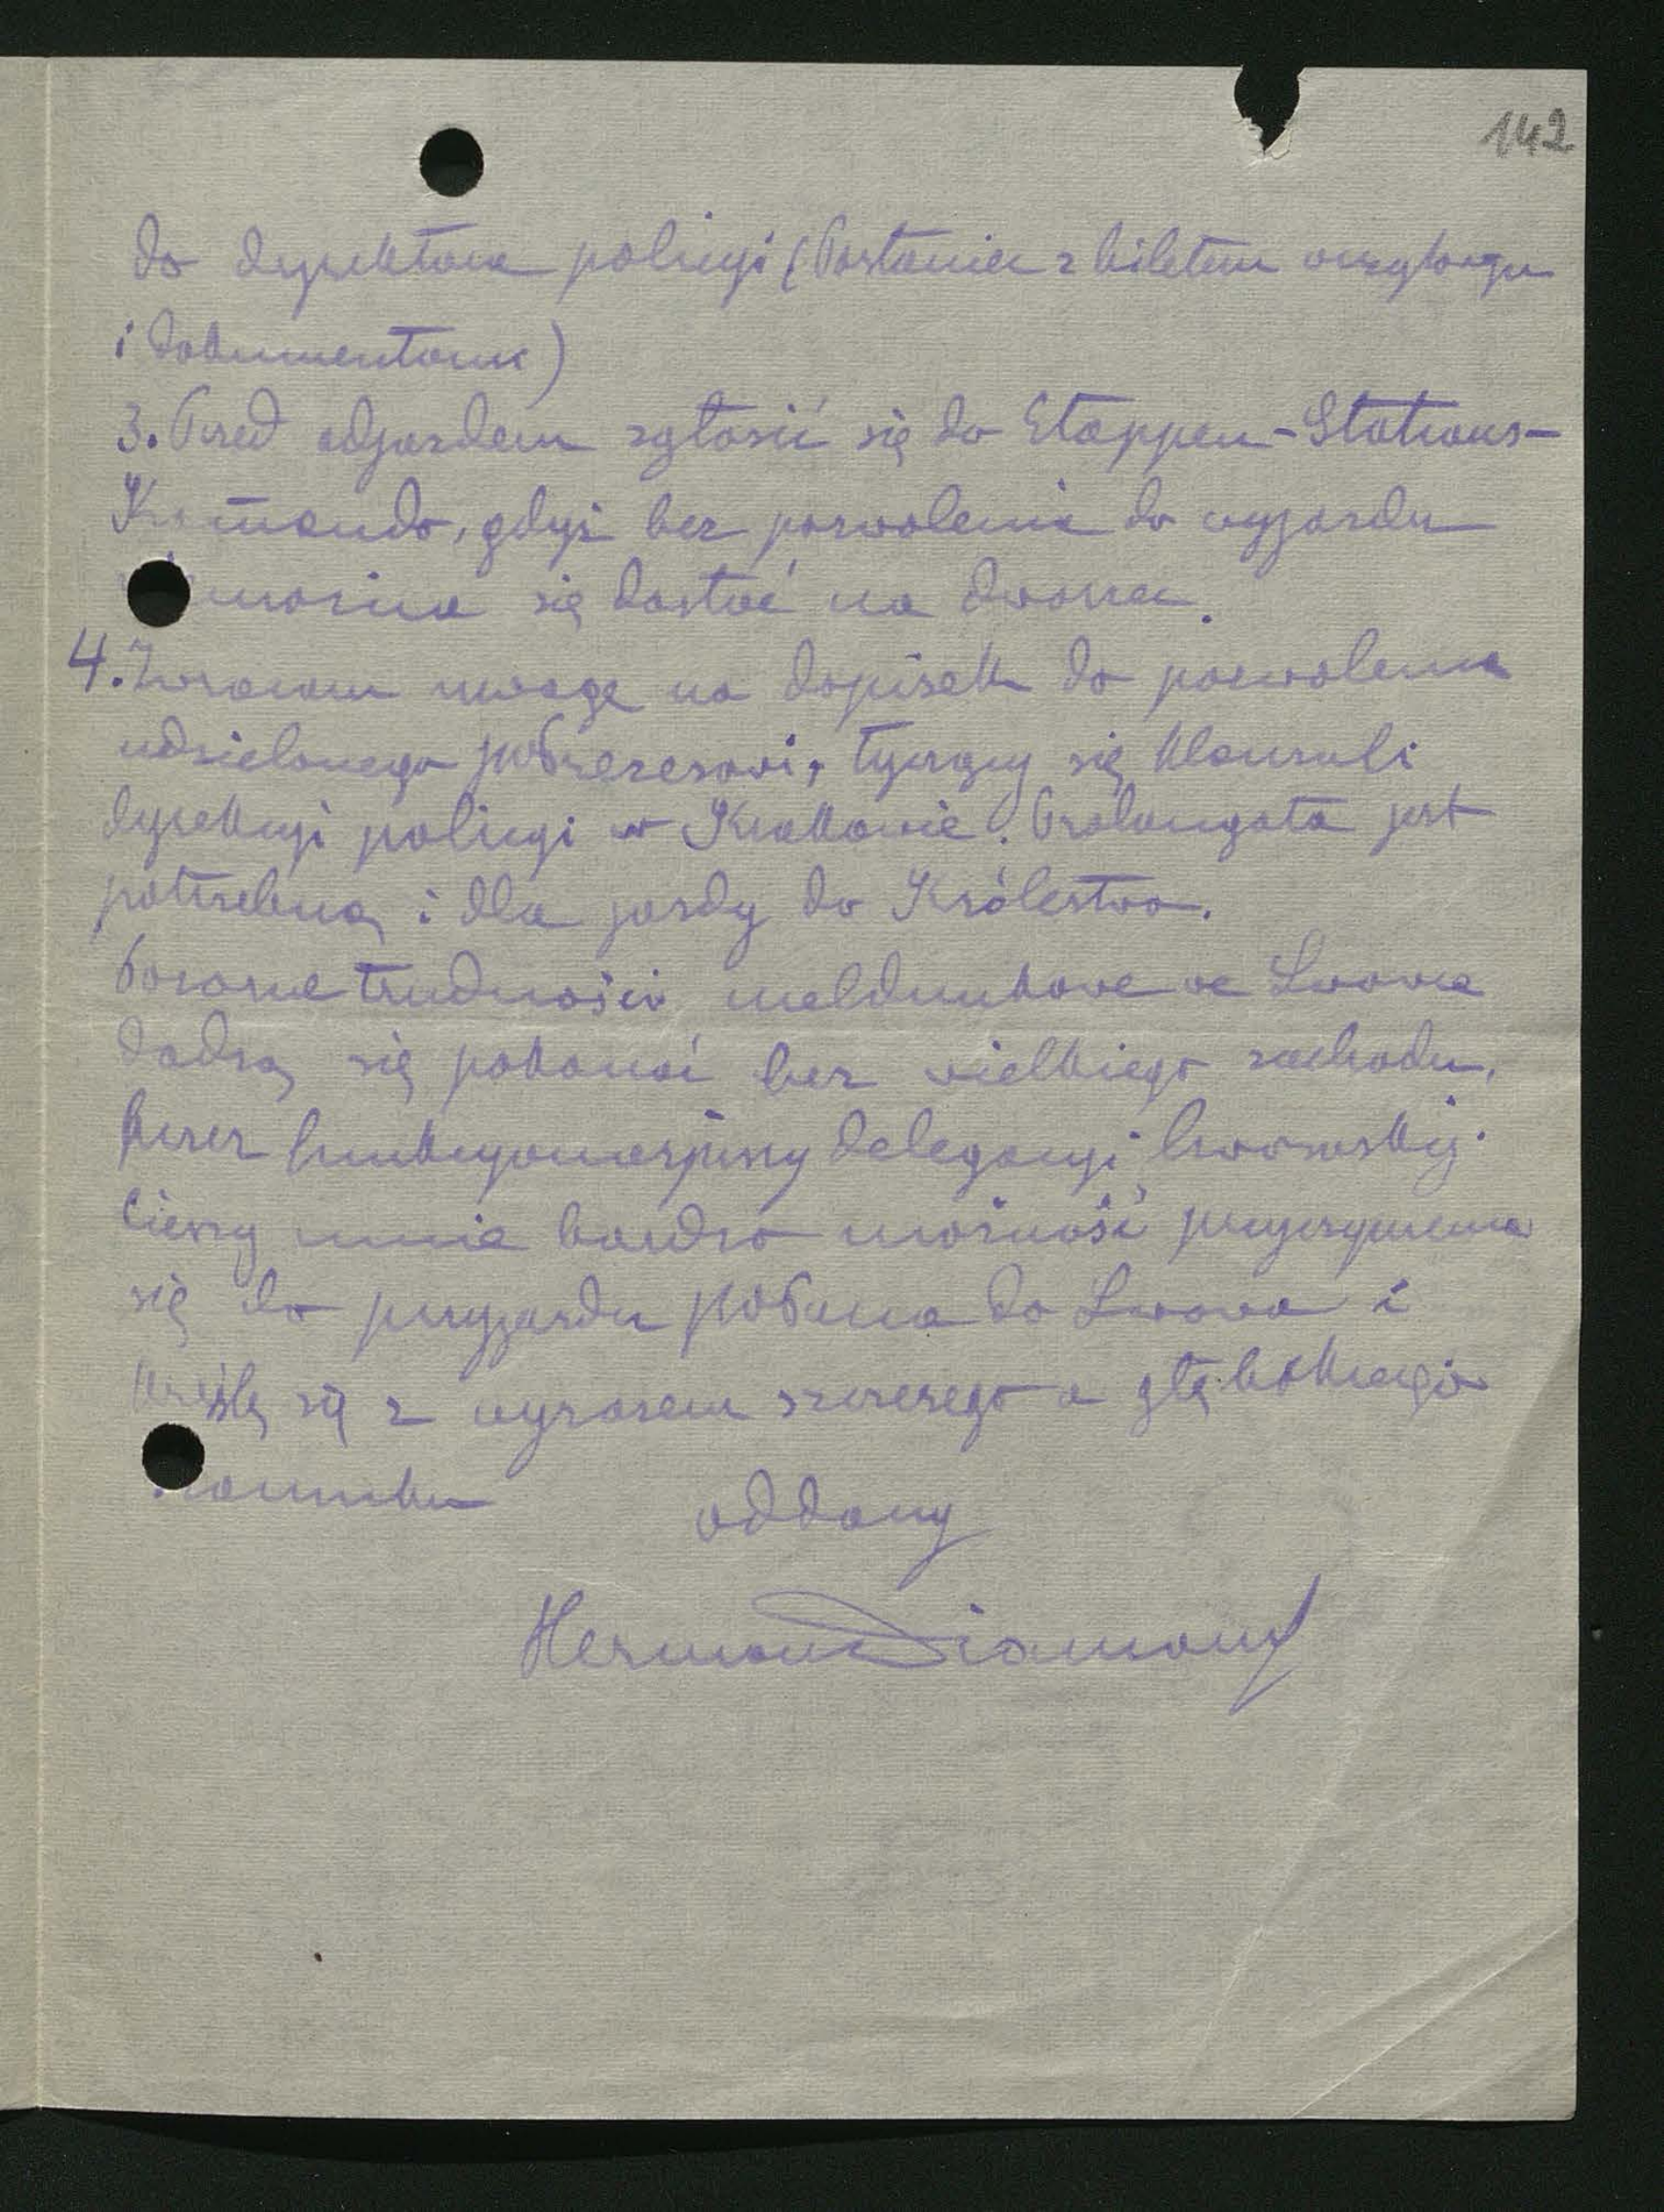 142
do dyrektora policyi (Posłaniec z biletem wizytowym
i dokumentami)
3. Przed odjazdem zgłosić się do Etappen-Stations-
Komando, gdyż bez pozwolenia do wyjazdu
można się dostać na dworzec.
4. Zwracam uwagę na dopisek do pozwolenia
udzielonego Prezesowi, tyczący się klauzuli
dyrekcyi policyi w Krakowie. Prolongata jest
potrzebną i dla jazdy do Królestwa.
Pozorne trudności meldunkowe we Lwowie
dadzą się pokonać bez wielkiego zachodu,
przez funkcyonaryuszy delegacyi lwowskiej.
Cieszy mnie bardzo możność przyczynienia
się do przyjazdu Pana do Lwowa i
kreślę się z wyrazem szczerego a głębokiego
szacunku oddany
Herman Diamand